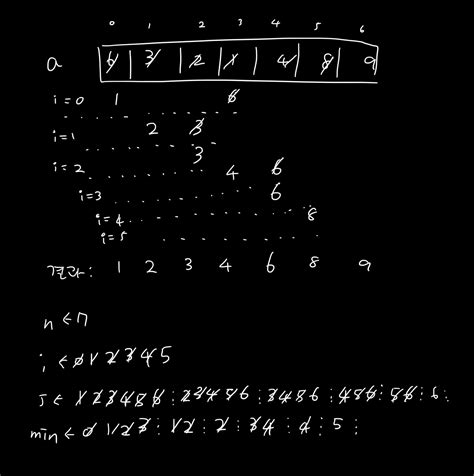 0 1 2 3 4 5 6
a 6 3 2 1 4 8 9
i=0 1 6
i=1 2 3
3
i=2 4 6
i=3 6
i=4 8
i=5
결과: 1 2 3 4 6 8 9
n ← 7
i ← 0 1 2 3 4 5
j ← 1 2 3 4 5 6 : 2 3 4 5 6 : 3 4 5 6 : 4 5 6 : 5 6 : 6 :
min ← 0 1 2 3 : 1 2 : 2 : 3 4 : 4 : 5 :